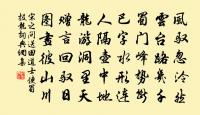 風馭忽泠然
雲台路幾千
蜀門峰勢斷
巴字水形連
人隔壺中地
龍游洞里天
贈言回馭日
圖畫彼山川
宋之问送田道士使蜀
投龍詞典網集